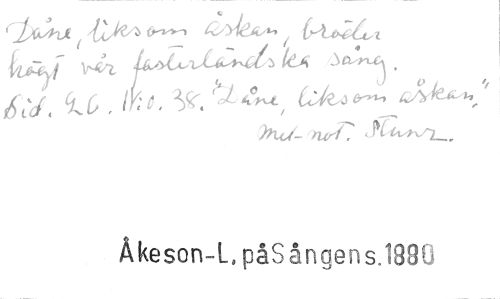 Dåne, liksom åskan, bröder
högt vår fosterländska sång.
Sid. 26. No. 38. "Dåne, liksom åskan,"
mel-not. Stunz.
Åkeson-L. på Sångens. 1880